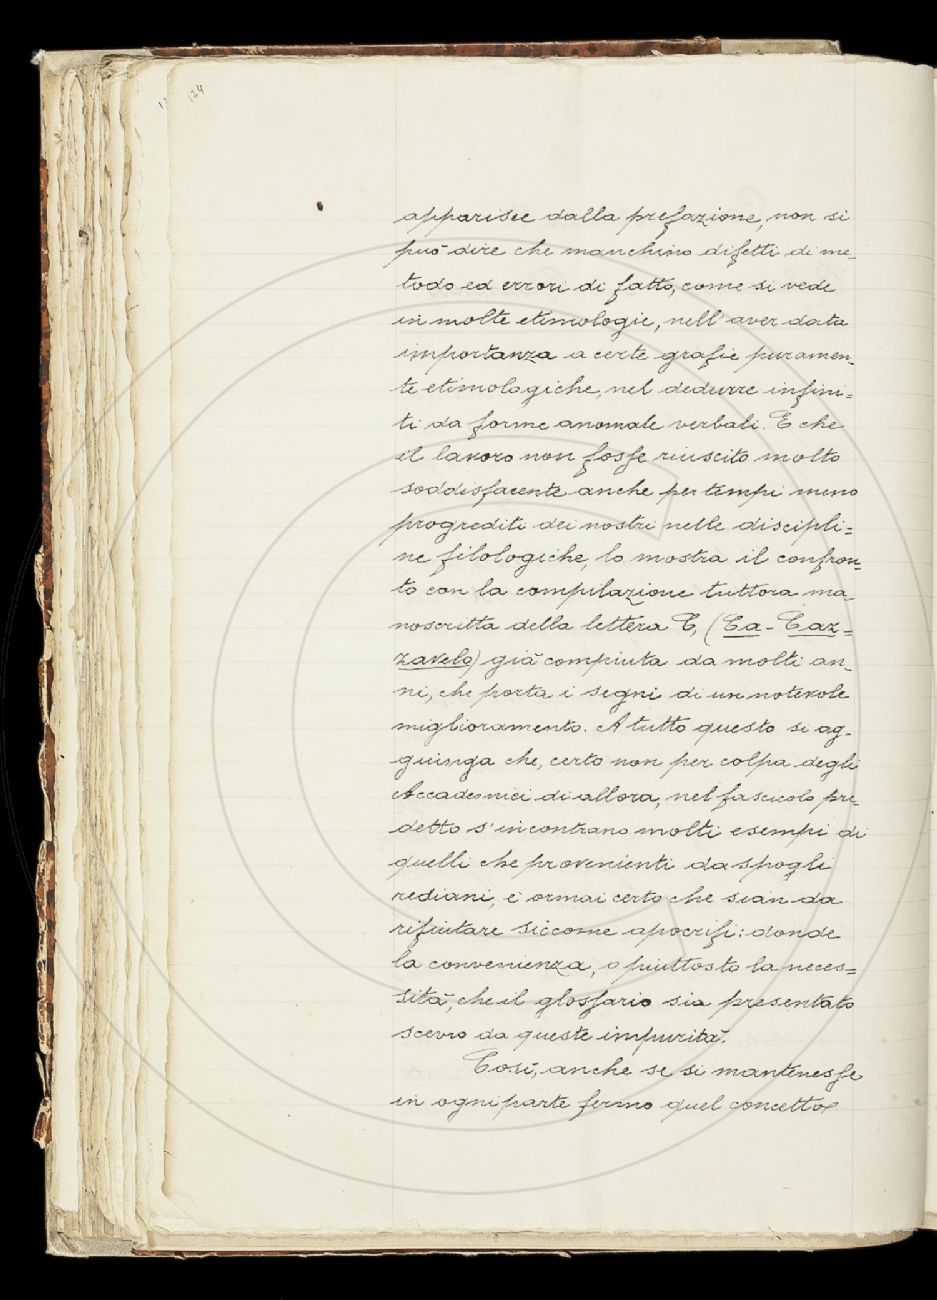 124
apparisce dalla prefazione, non si
può dire che manchino difetti di me-
todo ed errori di fatto, come si vede
in molte etimologie, nell'aver data
importanza a certe grafie puramen-
te etimologiche, nel dedurre infini-
ti da forme anomale verbali. E che
il lavoro non fosse riuscito molto
soddisfacente anche per tempi meno
progrediti dei nostri nelle discipli=
ne filologiche, lo mostra il confron-
to con la compilazione tuttora ma-
noscritta della lettera C, (Ca - Caz=
zavelo) già compiuta da molti an-
ni, che porta i segni di un notevole
miglioramento. A tutto questo si ag-
giunga che, certo non per colpa degli
Accademici di allora, nel fascicolo pre-
detto s'incontrano molti esempi di
quelli che provenienti da spogli
rediani, è ormai certo che sian da
rifiutare siccome apocrifi: donde
la convenienza, o piuttosto la neces=
sità, che il glossario sia presentato
scevro da queste impurità.
Così, anche se si mantenesse
in ogni parte fermo quel concetto